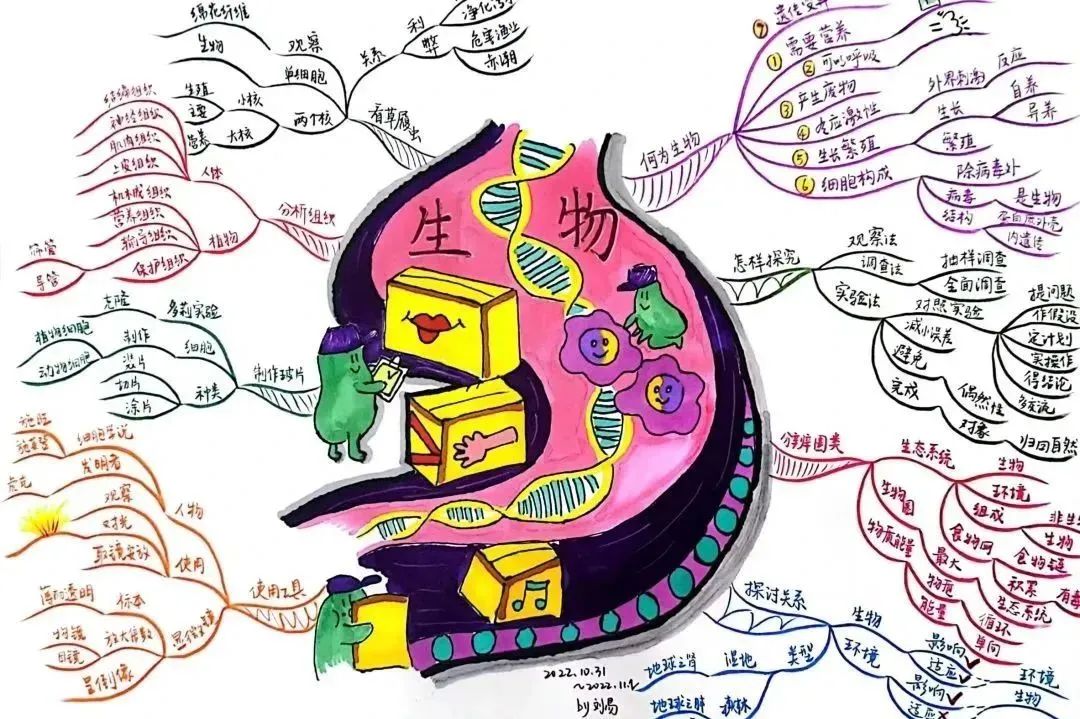 生物
何为生物
⑦
①需要营养
②可以呼吸
③产生废物
④应激性
外界刺激
反应
⑤生长繁殖
生长
自养
异养
繁殖
⑥细胞构成
除病毒外
病毒
是生物
结构
蛋白质外壳
内遗传
怎样探究
观察法
调查法
抽样调查
全面调查
实验法
对照实验
提问题
作假设
定计划
实操作
得结论
减小误差
避免
偶然性
完成
对象
归回自然
分辨图类
生态系统
生物
环境
组成
非生
生物
食物网
食物链
最大
积累
有毒
生态系统
循环
单向
生物圈
物质能量
物质
能量
探讨关系
生物
影响
适应
环境
影响
适应
环境
生物
类型
湿地
地球之肾
森林
地球之肺
看草履虫
关系
利
弊
危害渔业
赤潮
观察
棉花纤维
生物
单细胞
两个核
小核
生殖
大核
主要
营养
分析组织
人体
结缔组织
神经组织
肌肉组织
上皮组织
植物
机械组织
营养组织
输导组织
筛管
导管
保护组织
制作玻片
多莉实验
克隆
细胞
制作
植物细胞
动物细胞
种类
装片
切片
涂片
使用工具
人物
细胞学说
施旺
发明者
虎克
使用
观察
对光
取镜安放
显微镜
标本
薄而透明
放大倍数
物镜
目镜
呈倒像
2022.10.31
~2022.11.1
by 刘易